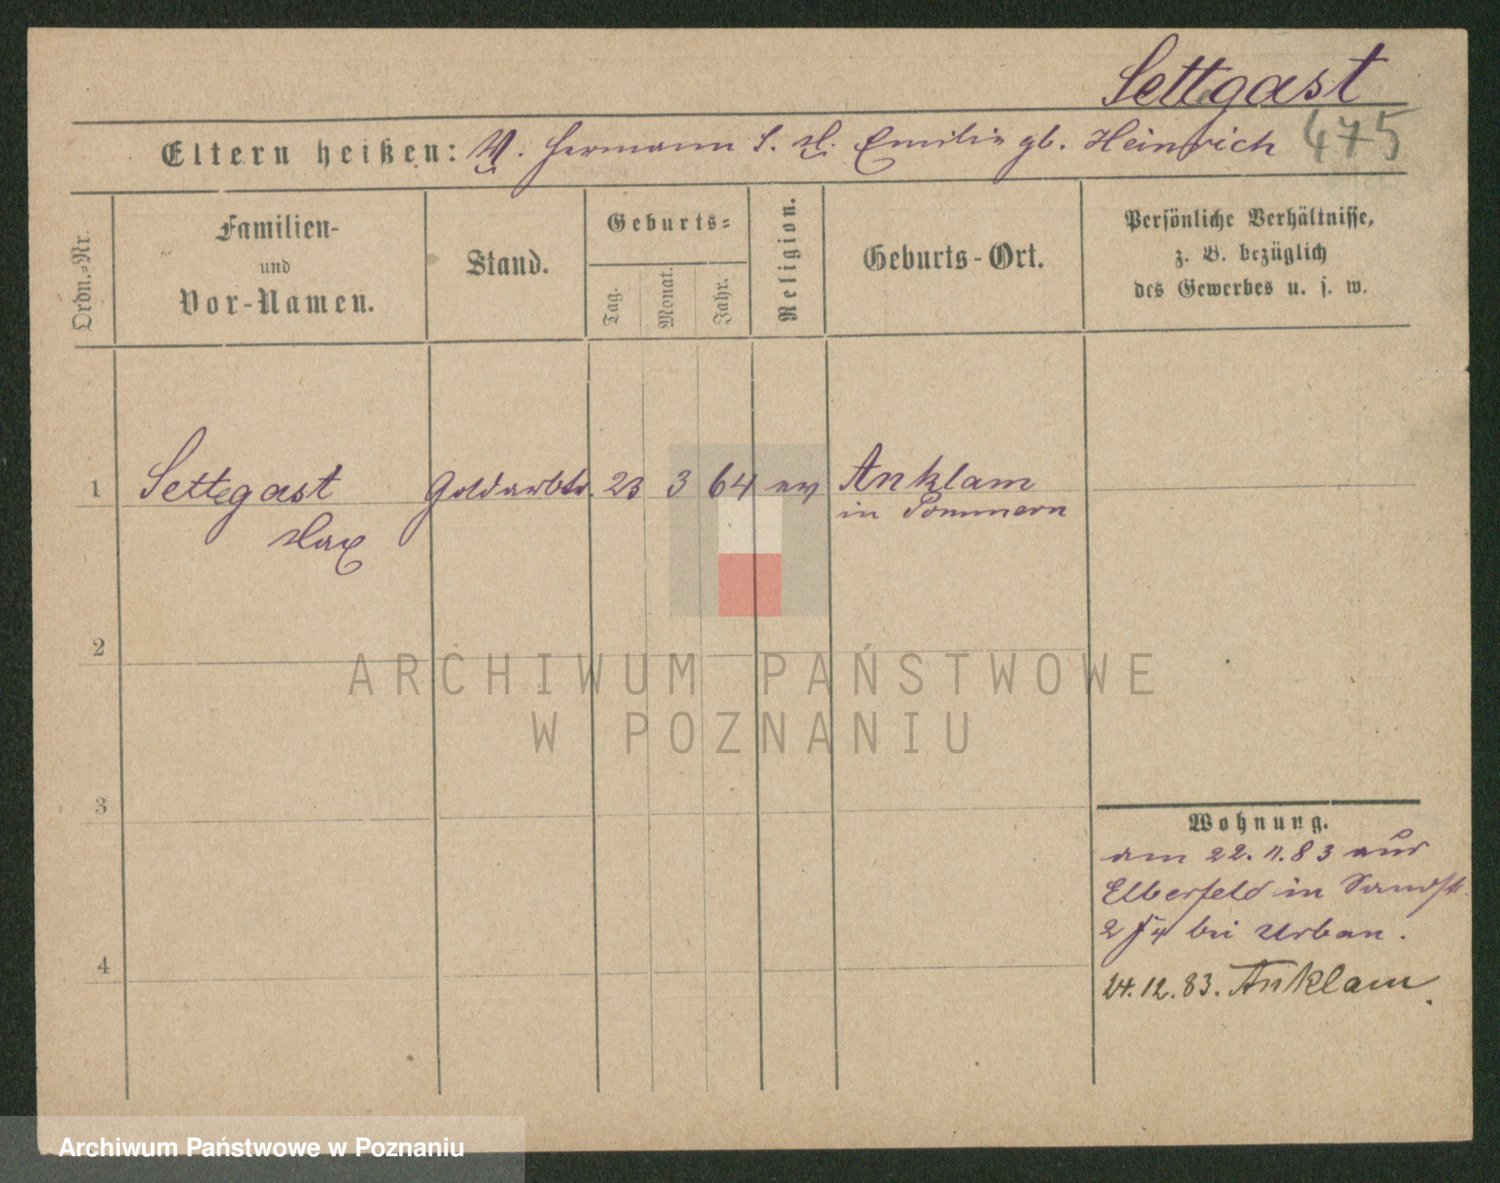 Settgast
475
Eltern heißen: V. Hermann S. M. Emilie gb. Heinrich
Ordn.-Nr.
Familien-
und
Vor-Namen.
Stand.
Geburts-
Tag.
Monat.
Jahr.
Religion.
Geburts-Ort.
Persönliche Verhältnisse,
z. B. bezüglich
des Gewerbes u. s. w.
1 Settegast Goldarbtr. 23 3 64 ev Anklam
Max in Pommern
2
ARCHIWUM PAŃSTWOWE
W POZNANIU
3
Wohnung.
am 22.11.83 aus
Elberfeld in Sandstr.
2 bei Urban.
4
24.12.83. Anklam.
Archiwum Państwowe w Poznaniu